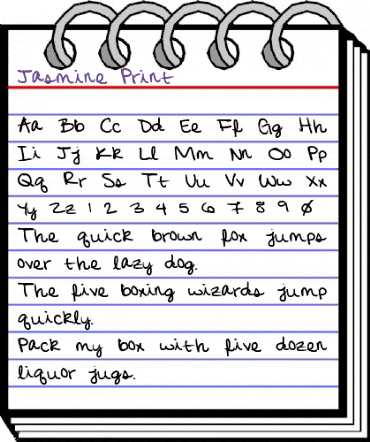 Jasmine Print
Aa Bb Cc Dd Ee Ff Gg Hh
Ii Jj Kk Ll Mm Nn Oo Pp
Qq Rr Ss Tt Uu Vv Ww Xx
Yy Zz 1 2 3 4 5 6 7 8 9 0
The quick brown fox jumps
over the lazy dog.
The five boxing wizards jump
quickly.
Pack my box with five dozen
liquor jugs.